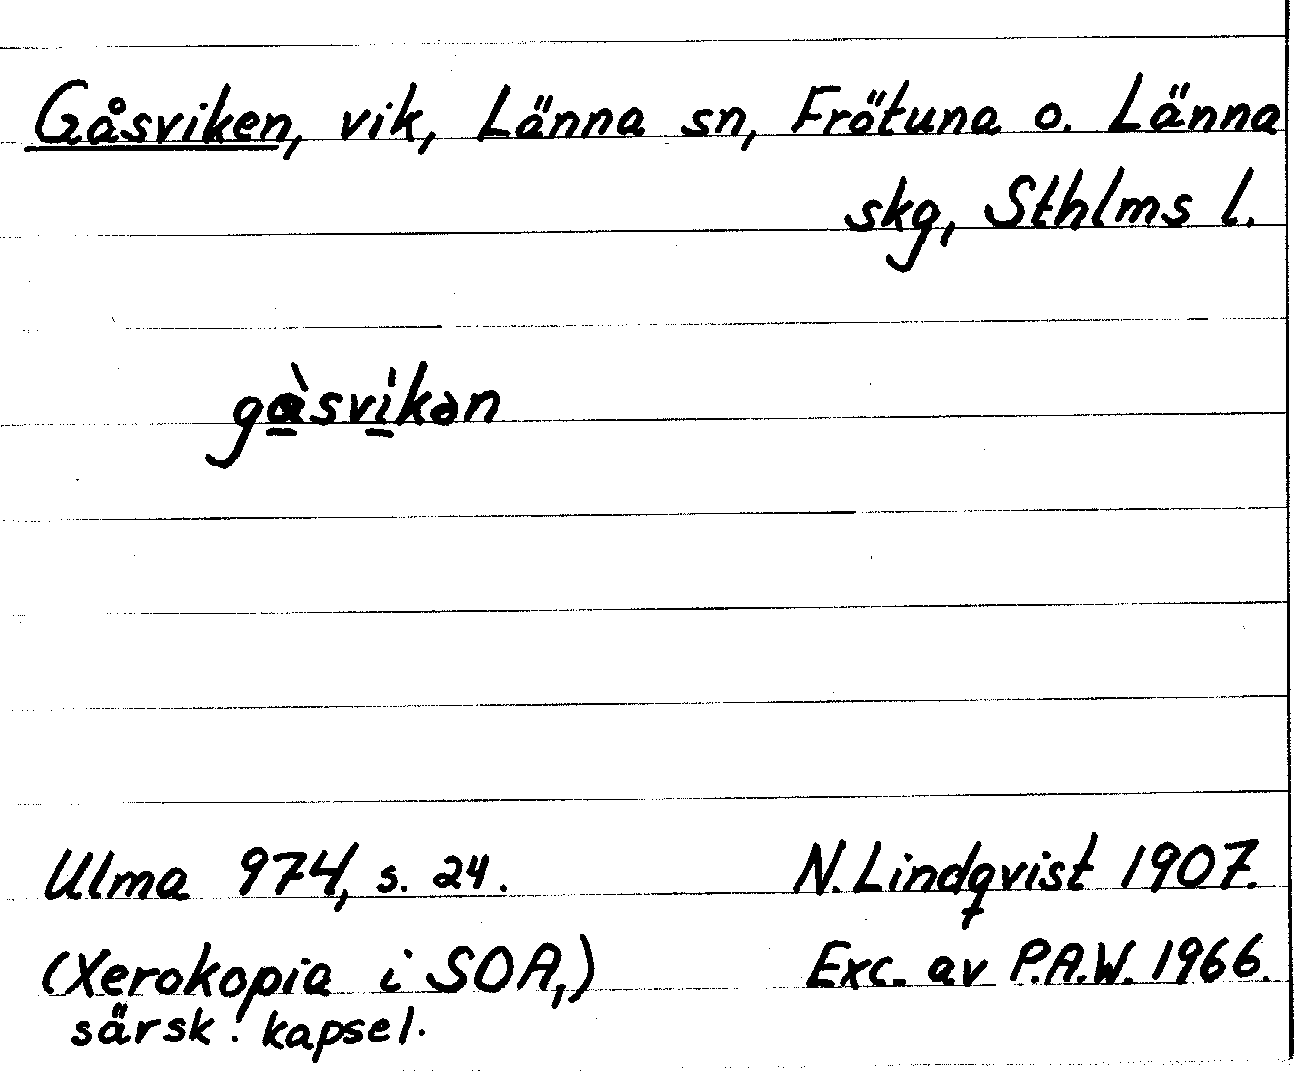 Gåsviken, vik, Länna sn, Frötuna o. Länna
skg, Sthlms l.
gàsvi̍kən
Ulma 974, s. 24.
N. Lindqvist 1907.
(Xerokopia i SOA,)
Exc. av P.A.W. 1966.
särsk. kapsel.